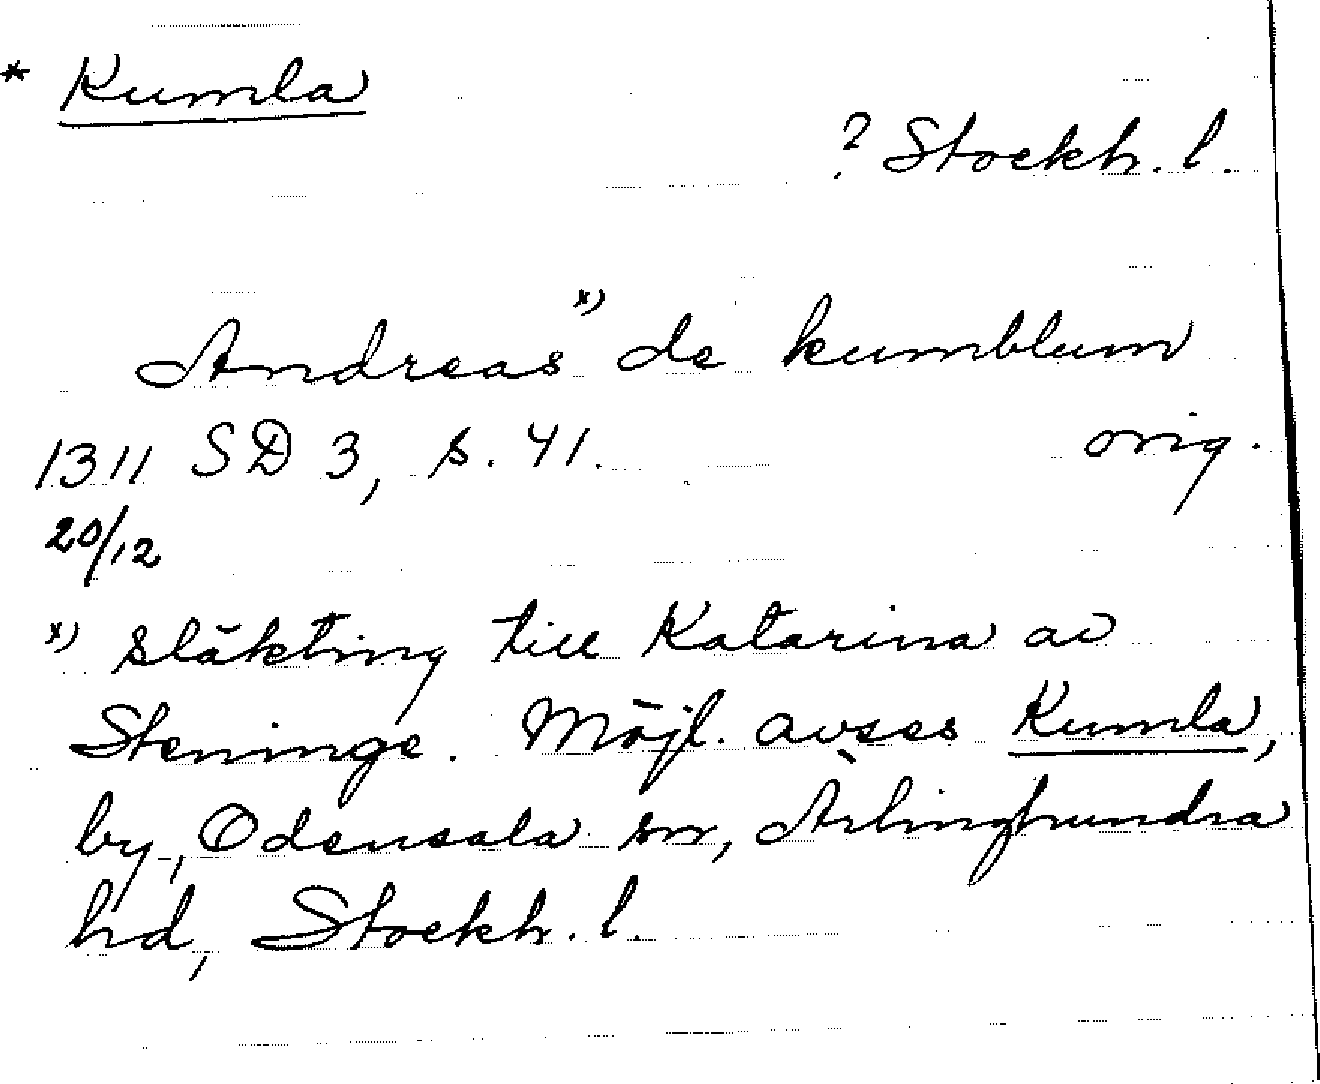 * Kumla
? Stockh. l.
Andreas x) de kumblum
1311 SD 3, s. 41. orig.
20/12
x) släkting till Katarina av
Steninge. Möjl. avses Kumla,
by, Odensala sn, Ärlinghundra
hd, Stockh. l.